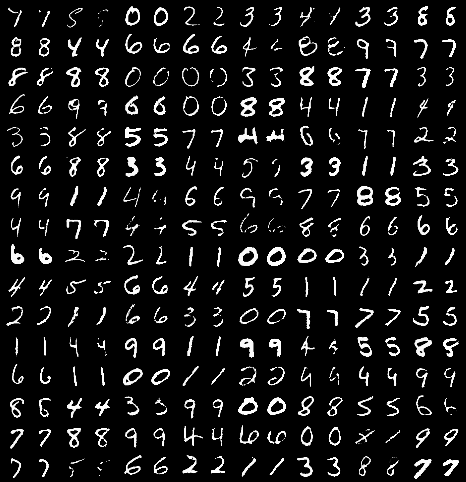 7 7 5 5 0 0 2 2 3 3 4 1 3 3 8 8
8 8 4 4 6 6 6 6 4 8 8 9 9 7 7
8 8 8 8 0 0 0 0 3 3 8 8 7 7 3 3
6 6 9 9 6 6 0 0 8 8 4 4 1 1 4 4
3 3 8 8 5 5 7 7 4 4 6 6 7 7 2 2
6 6 8 8 3 3 4 4 5 3 3 1 1 3 3
9 9 1 1 4 4 6 6 9 9 7 7 8 8 5 5
4 4 7 7 4 4 5 5 6 6 8 8 6 6 6 6
6 6 2 2 2 2 1 1 0 0 0 0 3 3 1 1
4 4 5 5 6 6 4 4 5 5 1 1 1 1 2 2
2 2 8 1 6 6 3 3 0 0 7 7 7 7 5 5
1 1 4 4 9 9 1 1 9 9 4 4 5 5 8 8
6 6 1 1 0 0 1 1 2 2 9 9 4 4 9 9
8 8 4 4 3 3 9 9 0 0 8 8 5 5 6 6
7 7 8 8 9 9 4 4 6 6 0 0 8 1 9 9
7 7 5 5 6 6 2 2 1 1 3 3 8 8 7 7